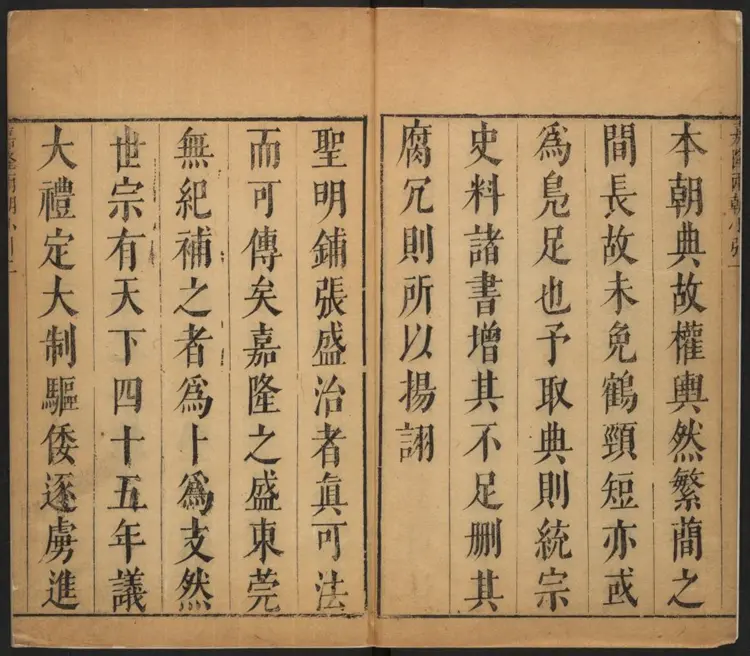 本朝典故權輿然繁蕳之
間長故未免鶴頸短亦或
為鳧足也予取典則統宗
史料諸書增其不足刪其
腐冗則所以揚詡
聖明鋪張盛治者眞可法
而可傳矣嘉隆之盛東莞
無紀補之者爲卜爲支然
世宗有天下四十五年議
大禮定大制驅倭逐虜進